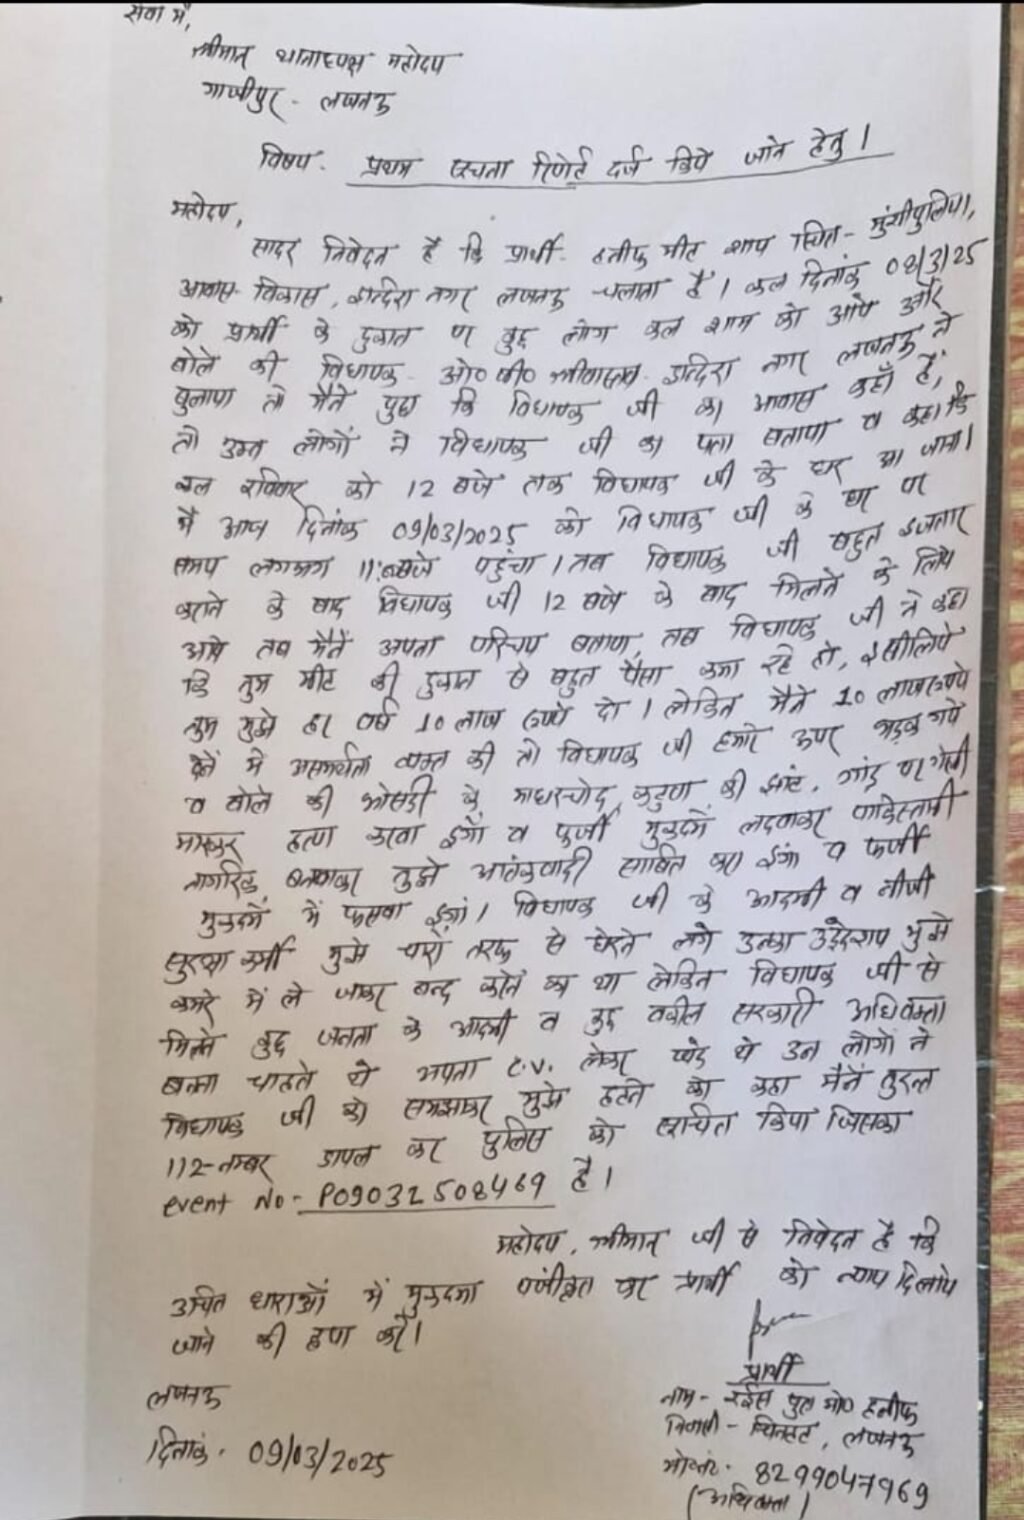 सेवा में,
श्रीमान् थानाध्यक्ष महोदय
गाजीपुर - लखनऊ
विषय - प्रथम सूचना रिपोर्ट दर्ज किये जाने हेतु।
महोदय,
सादर निवेदन है कि प्रार्थी - हनीफ मीट शाप स्थित - मुंशीपुलिया,
आवास विकास, इन्दिरा नगर लखनऊ चलाता है। कल दिनांक 08/3/25
को प्रार्थी के दुकान पर कुछ लोग कल शाम को आये और
बोले की विधायक ओ० पी० श्रीवास्तव इन्दिरा नगर लखनऊ ने
बुलाया तो मैने पुछा कि विधायक जी का आवास कहाँ है,
तो उक्त लोगों ने विधायक जी का पता बताया व कहा कि
कल रविवार को 12 बजे तक विधायक जी के घर आ जाना।
मैं आज दिनांक 09/03/2025 को विधायक जी के घर पर
समय लगभग 11:बजे पहुंचा। तब विधायक जी बहुत इन्तजार
कराने के बाद विधायक जी 12 बजे के बाद मिलने के लिये
आये तब मैनें अपना परिचय बताया, तब विधायक जी ने कहा
कि तुम मीट की दुकान से बहुत पैसा कमा रहे हो, इसीलिये
तुम मुझे हर वर्ष 10 लाख रुपये दो। लेकिन मैने 10 लाख रुपये
देने में असमर्थता व्यक्त की तो विधायक जी हमारे ऊपर भड़क गये
व बोले की भोसडी के, माधरचोद, कटुए की झांट, गांड पर गोली
मारकर हत्या करवा दूंगा व फर्जी मुकदमें लदवाकर पाकिस्तानी
नागरिक बनवाकर तुझे आतंकवादी साबित करा दूंगा व फर्जी
मुकदमें में फसवा दूंगा। विधायक जी के आदमी व नीजी
सुरक्षा कर्मी मुझे चारों तरफ से घेरने लगे उनका उद्देश्य मुझे
कमरे में ले जाकर बन्द करने का था लेकिन विधायक जी से
मिलने कुछ जनता के आदमी व कुछ वकील सरकारी अधिवक्ता
बनना चाहते थे अपना C.V. लेकर खड़े थे उन लोगों ने
विधायक जी को समझाकर मुझे हटने को कहा मैनें तुरन्त
112-नम्बर डायल कर पुलिस को सूचित किया जिसका
event No- P09032508469 है।
महोदय, श्रीमान् जी से निवेदन है कि
उचित धाराओं में मुकदमा पंजीकृत कर प्रार्थी को न्याय दिलाये
जाने की कृपा करें।
प्रार्थी
लखनऊ
नाम - रईस पुत्र मो० हनीफ
निवासी - चिनहट, लखनऊ
दिनांक - 09/03/2025
मो०नं० - 8299047969
(अधिवक्ता)